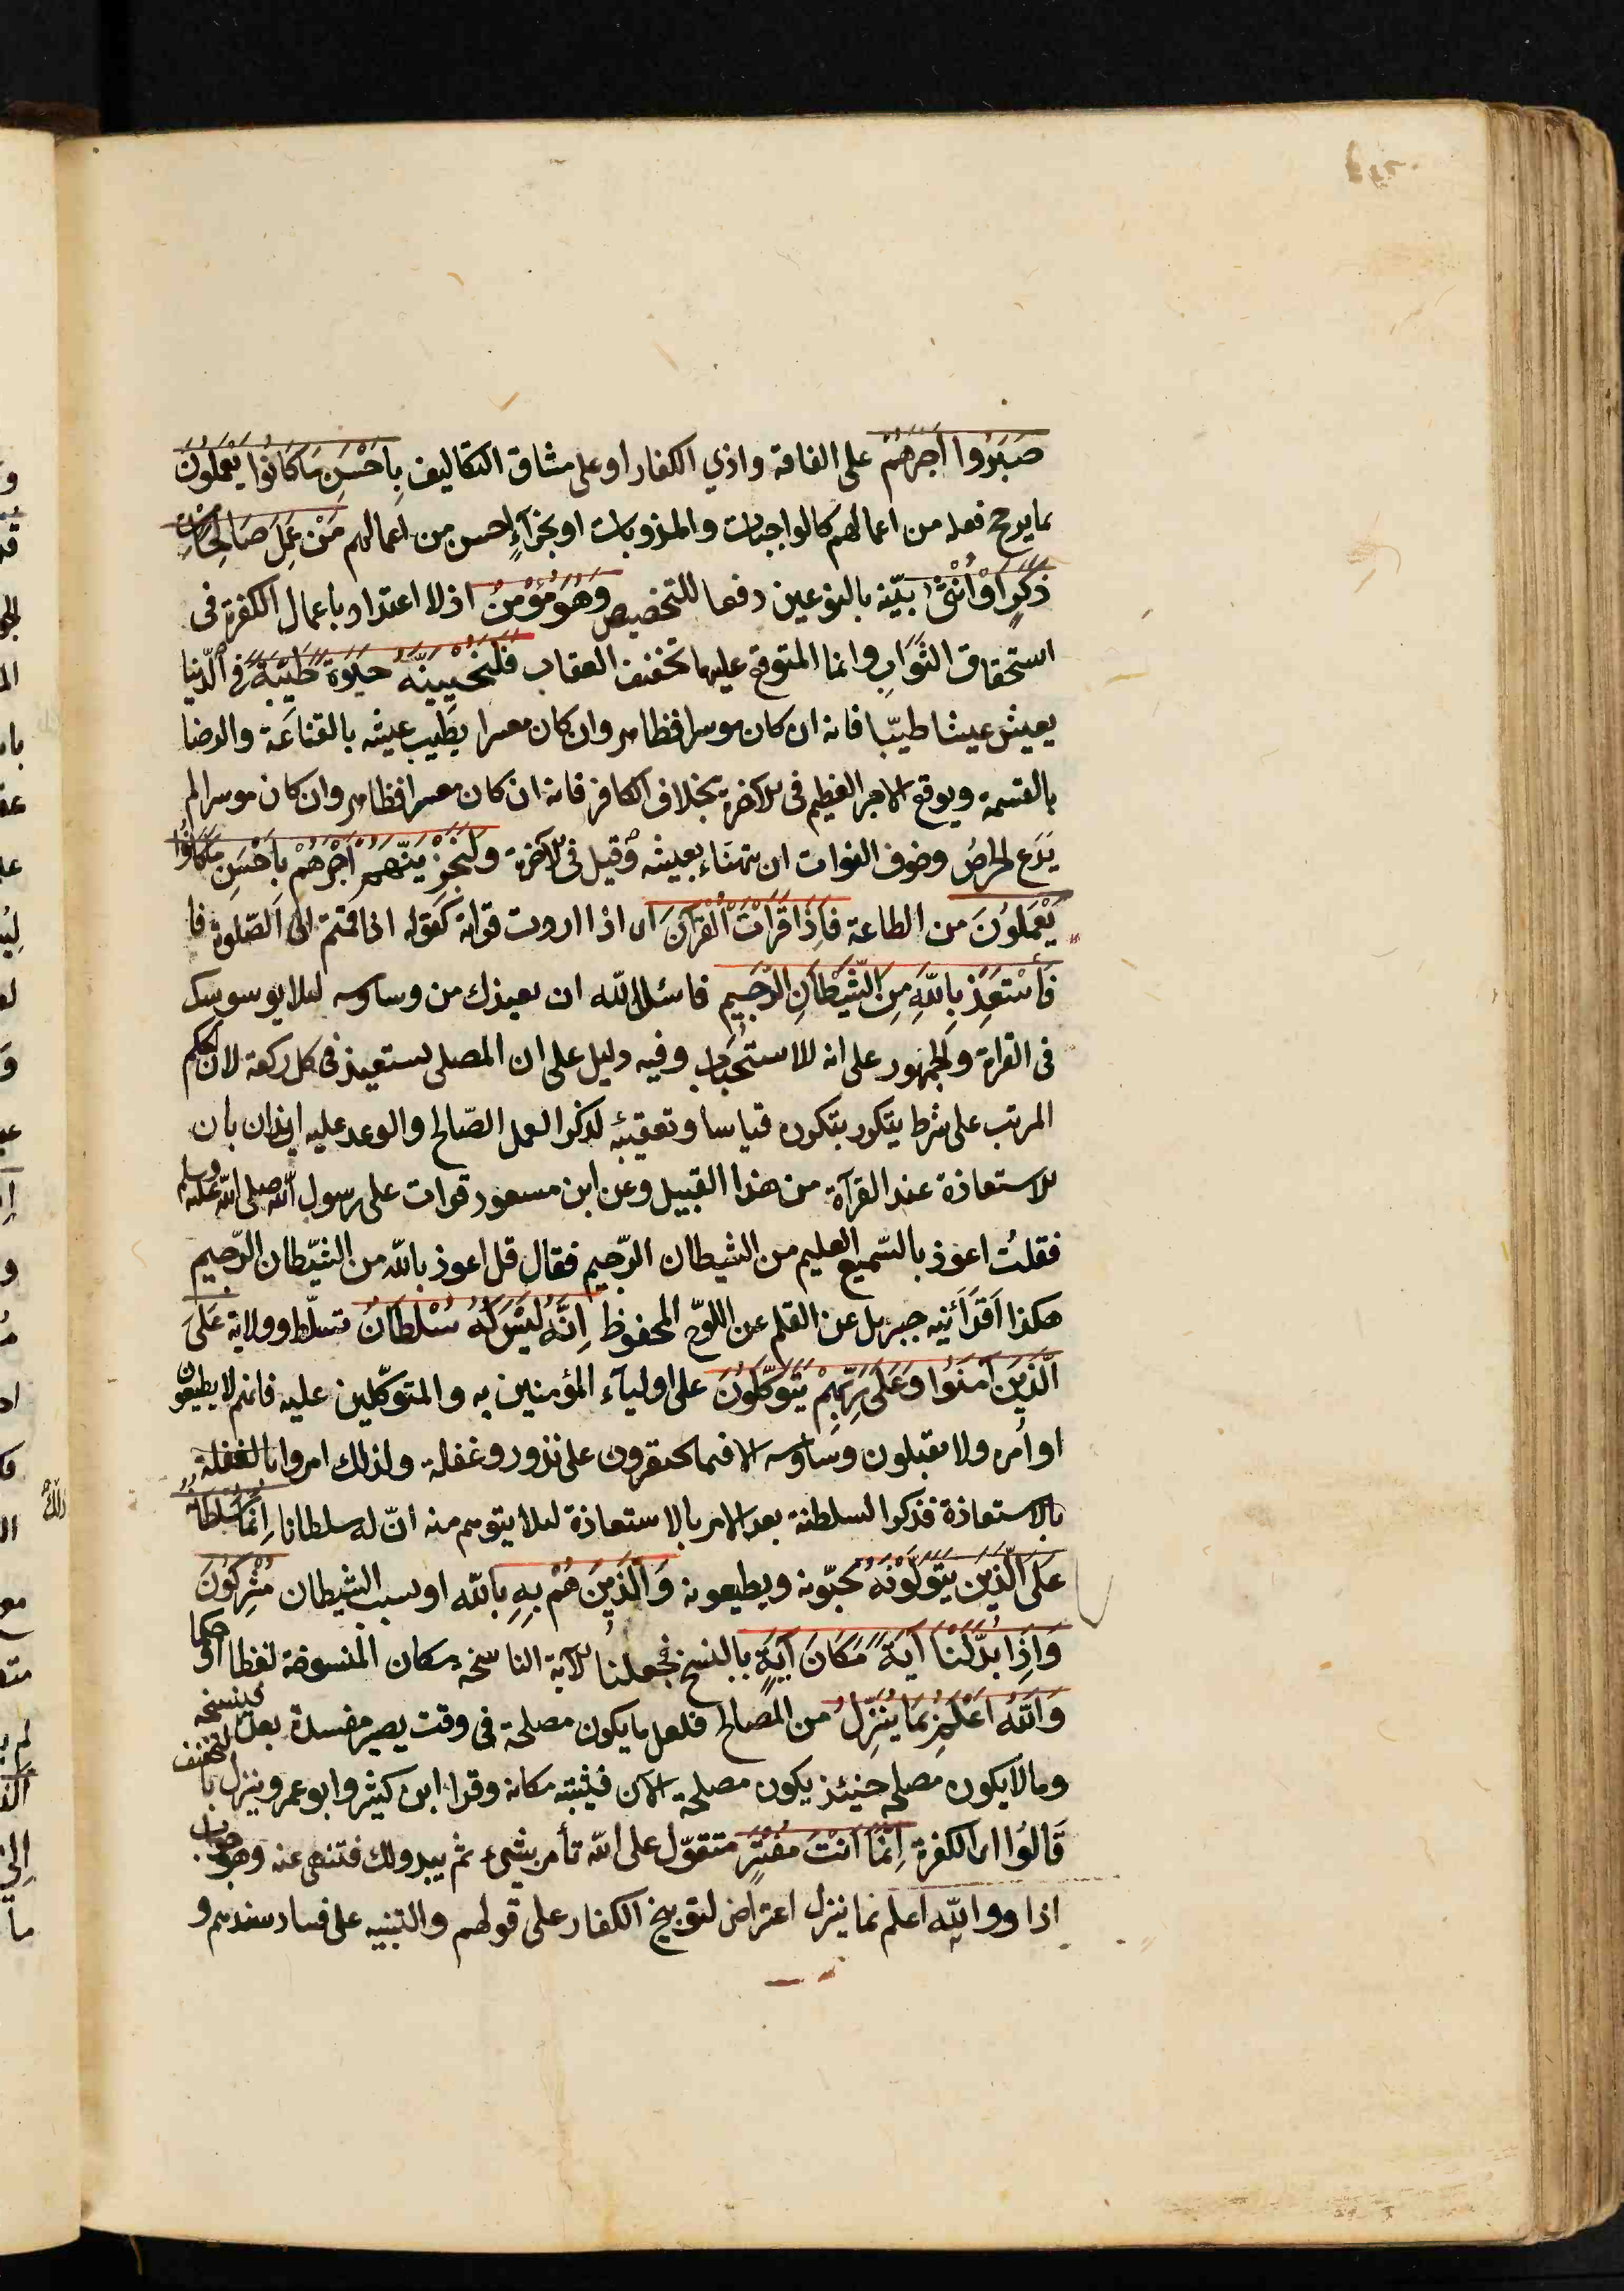 صَبَرُوا اَجْرَهُمْ على الفاقة واذي الكفار او على مشاق التكاليف بِاَحْسَنِ مَا كَانُوا يَعْمَلُونَ
بما يرجح فعله من اعمالهم كالواجبات والمندوبات او بجزآءٍ احسن من اعمالهم مَنْ عَمِلَ صَالِحًا مِنْ
ذَكَرٍ اَوْ اُنْثٰى بيّنه بالنوعين دفعا للتخصيص وَهُوَ مُؤْمِنٌ اذ لا اعتداد باعمال الكفرة فى
استحقاق الثَّوَابِ وانما المتوقع عليها تخفيف العقاب فَلَنُحْيِيَنَّهُ حَيٰوةً طَيِّبَةً فى الدّنيا
يعيش عيشا طيّبا فانه ان كان موسرا فظاهر وان كان معسرا يطيب عيشه بالقناعَة والرضا
بالقسمة ويوقع الاجر العظيم فى الآخرة بخلاف الكافر فانه ان كان معسرا فظاهر وان كان موسرا لم
يَدَع الحرصُ وخوف الفوات ان يتهنّاء بعيشه وَقيل فى الآخرة وَلَنَجْزِيَنَّهُمْ اَجْرَهُمْ بِاَحْسَنِ مَا كَانُوا
يَعْمَلُونَ من الطاعة فَاِذَا قَرَاْتَ الْقُرْآنَ اى اذا اردت قراءة كقوله اذا قمتم الى الصّلوة فا
فَاسْتَعِذْ بِاللّٰهِ مِنَ الشَّيْطَانِ الرَّجِيمِ فاسئل اللّه ان يعيذك من وساوسه لئلا يوسوسك
فى القراة والجمهور على انه للاستحباب وفيه دليل على ان المصلى يستعيذ فى كل ركعة لان الحكم
المرتب على شرط يتكرر بتكرره قياسا وتعقيبُه لذكر العمل الصّالح والوعد عليه ايذان بان
الاستعاذة عند القرآة من هذا القبيل وعن ابن مسعود قرات على رسول اللّه صلى اللّه عليه وسلم
فقلتُ اعوذ بالسّميع العليم من الشيطان الرّجيم فقال قل اعوذ باللّه من الشّيطان الرّجيم
هكذا اَقْرَأَنِيه جبريل عن القلم عن اللوّح المحفوظ اِنَّهُ لَيْسَ لَهُ سُلْطَانٌ تسلّط وولاية عَلَى
الَّذِينَ اٰمَنُوا وَعَلٰى رَبِّهِمْ يَتَوَكَّلُونَ على اوليآء المؤمنين به والمتوكّلين عليه فانهم لا يطيعون
اوأمره ولا يقبلون وساوسه الا فيما يحتقرون على ندور وغفلة ولذلك امروا بالغفلة
بالاستعاذة فذكر السلطنة بعد الامر بالاستعاذة لئلا يتوهم منه انّ له سلطانا اِنَّمَا سُلْطَانُهُ
عَلَى الَّذِينَ يَتَوَلَّوْنَهُ يحبّونه ويطيعونه وَالَّذِينَ هُمْ بِهِ باللّه او بسبب الشيطان مُشْرِكُونَ
وَاِذَا بَدَّلْنَا اٰيَةً مَكَانَ اٰيَةٍ بالنسخ فجعلنا الآية الناسخة مكان المنسوخة لفظا او حكما
وَاللّٰهُ اَعْلَمُ بِمَا يُنَزِّلُ من المصالح فلعل ما يكون مصلحة فى وقت يصير مفسدة بعده فينسخه
وما لا يكون مصلحة حينئذ يكون مصلحة الآن فيثبته مكانه وقرا ابن كثير وابو عمرو ينزل بالتخفيف
قَالُوا اى الكفرة اِنَّمَا اَنْتَ مُفْتَرٍ متقوّل على اللّه تأمر بشىء ثم يبدو لك فتنهى عنه وهو جواب
اذا وواللّه اعلم بما ينزل اعتراض لتوبيخ الكفار على قولهم والتنبيه على فساد سندهم و